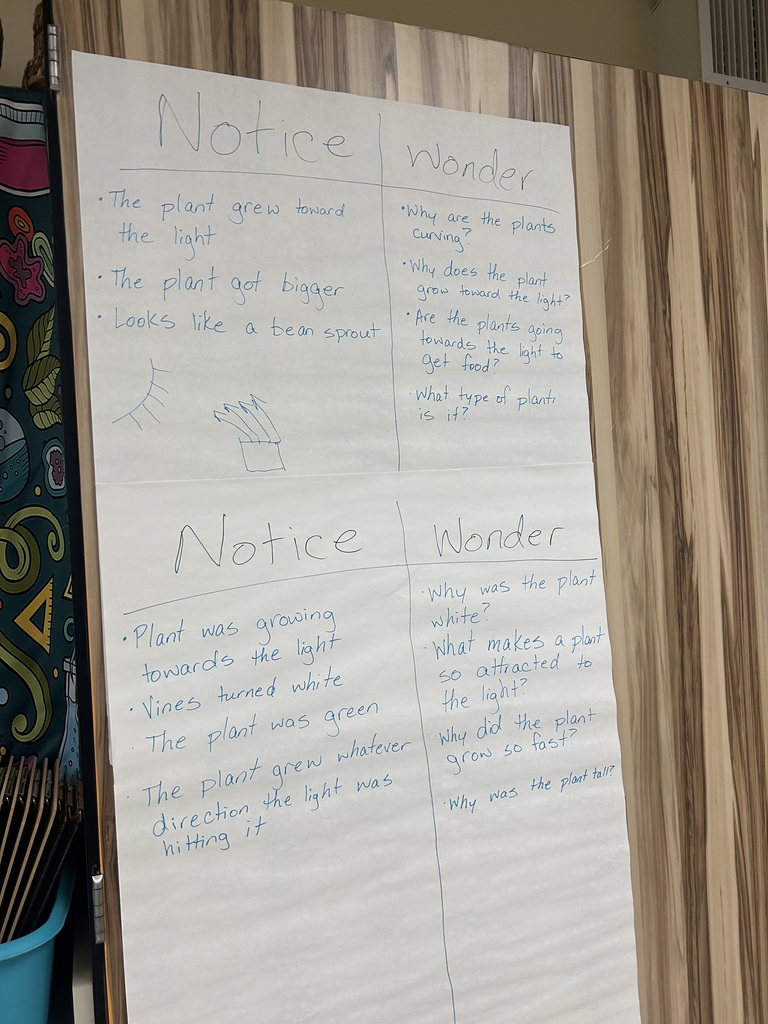 Notice
Wonder
• The plant grew toward
the light
• The plant got bigger
• Looks like a bean sprout
• Why are the plants
curving?
• Why does the plant
grow toward the light?
• Are the plants going
towards the light to
get food?
• What type of plants
is it?
Notice
Wonder
• Plant was growing
towards the light
• Vines turned white
• The plant was green
• The plant grew whatever
direction the light was
hitting it
• Why was the plant
white?
• What makes a plant
so attracted to
the light?
• Why did the plant
grow so fast?
• Why was the plant tall?